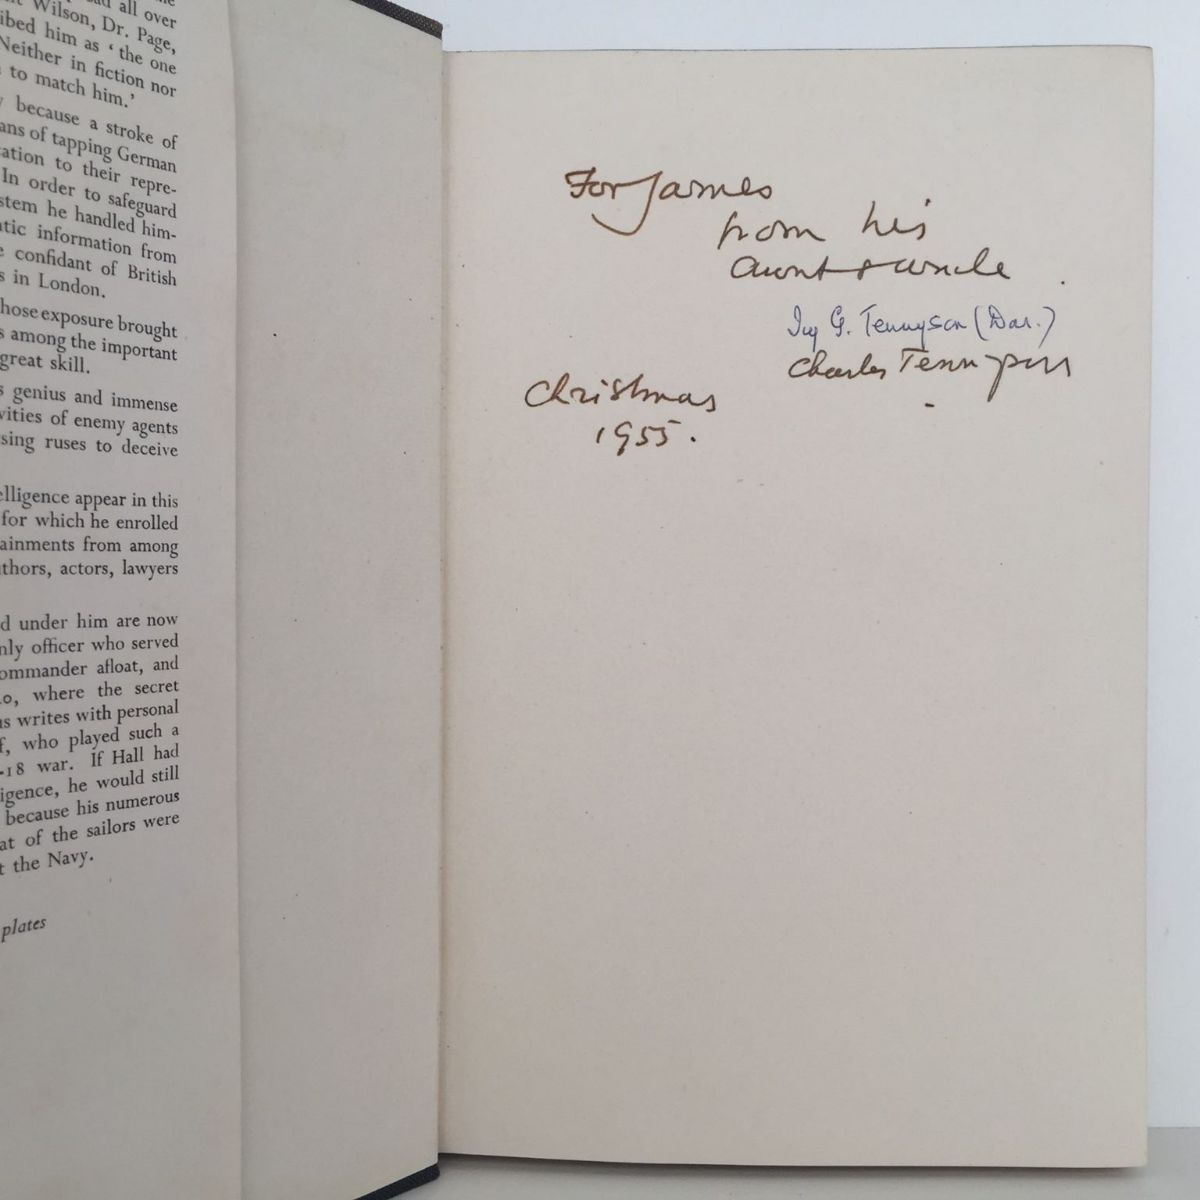 all over
Wilson, Dr. Page,
ibed him as ‘ the one
Neither in fiction nor
to match him.’
because a stroke of
ans of tapping German
ation to their repre-
In order to safeguard
stem he handled him-
tic information from
confidant of British
s in London.
hose exposure brought
s among the important
great skill.
s genius and immense
vities of enemy agents
sing ruses to deceive
elligence appear in this
for which he enrolled
ainments from among
thors, actors, lawyers
d under him are now
nly officer who served
ommander afloat, and
o, where the secret
us writes with personal
f, who played such a
-18 war. If Hall had
igence, he would still
because his numerous
at of the sailors were
t the Navy.
plates
For James
from his
Aunt & uncle
Ivy G. Tennyson (Dar.)
Charles Tennyson
Christmas
1955.